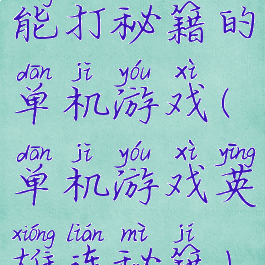 能打秘籍的
dān jī yóu xì
单机游戏(
dān jī yóu xì yīng
单机游戏英
xióng lián mì jí
雄连秘籍)